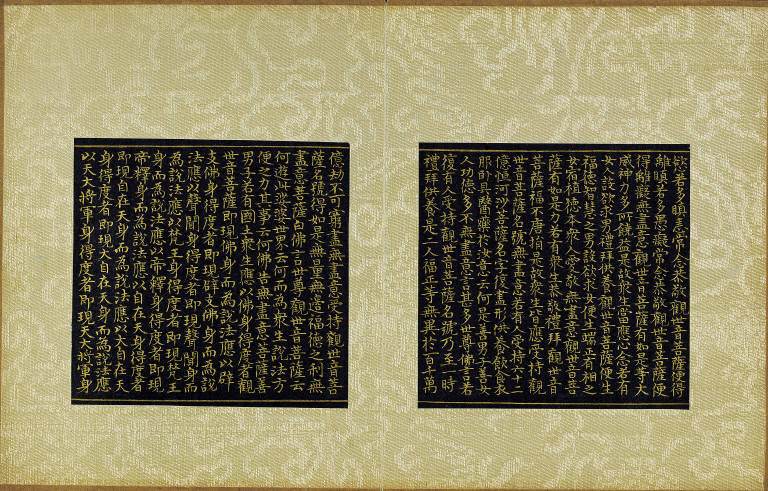 欲若多瞋恚常念恭敬觀世音菩薩便得
離瞋若多愚癡常念恭敬觀世音菩薩便
得離癡無盡意觀世音菩薩有如是等大
威神力多所饒益是故衆生常應心念若有
女人設欲求男禮拜供養觀世音菩薩便生
福德智慧之男設欲求女便生端正有相之
女宿植德本衆人愛敬無盡意觀世音菩
薩有如是力若有衆生恭敬禮拜觀世音
菩薩福不唐捐是故衆生皆應受持觀
世音菩薩名號無盡意若有人受持六十二
億恒河沙菩薩名字復盡形供養飲食衣
服卧具醫藥於汝意云何是善男子善女
人功德多不無盡意言甚多世尊佛言若
復有人受持觀世音菩薩名號乃至一時
禮拜供養是二人福正等無異於百千萬
億劫不可窮盡無盡意受持觀世音菩
薩名號得如是無量無邊福德之利無
盡意菩薩白佛言世尊觀世音菩薩云
何遊此娑婆世界云何而為衆生說法方
便之力其事云何佛告無盡意菩薩善
男子若有國土衆生應以佛身得度者觀
世音菩薩即現佛身而為說法應以辟
支佛身得度者即現辟支佛身而為說
法應以聲聞身得度者即現聲聞身而
為說法應以梵王身得度者即現梵王
身而為說法應以帝釋身得度者即現
帝釋身而為說法應以自在天身得度者
即現自在天身而為說法應以大自在天
身得度者即現大自在天身而為說法應
以天大將軍身得度者即現天大將軍身